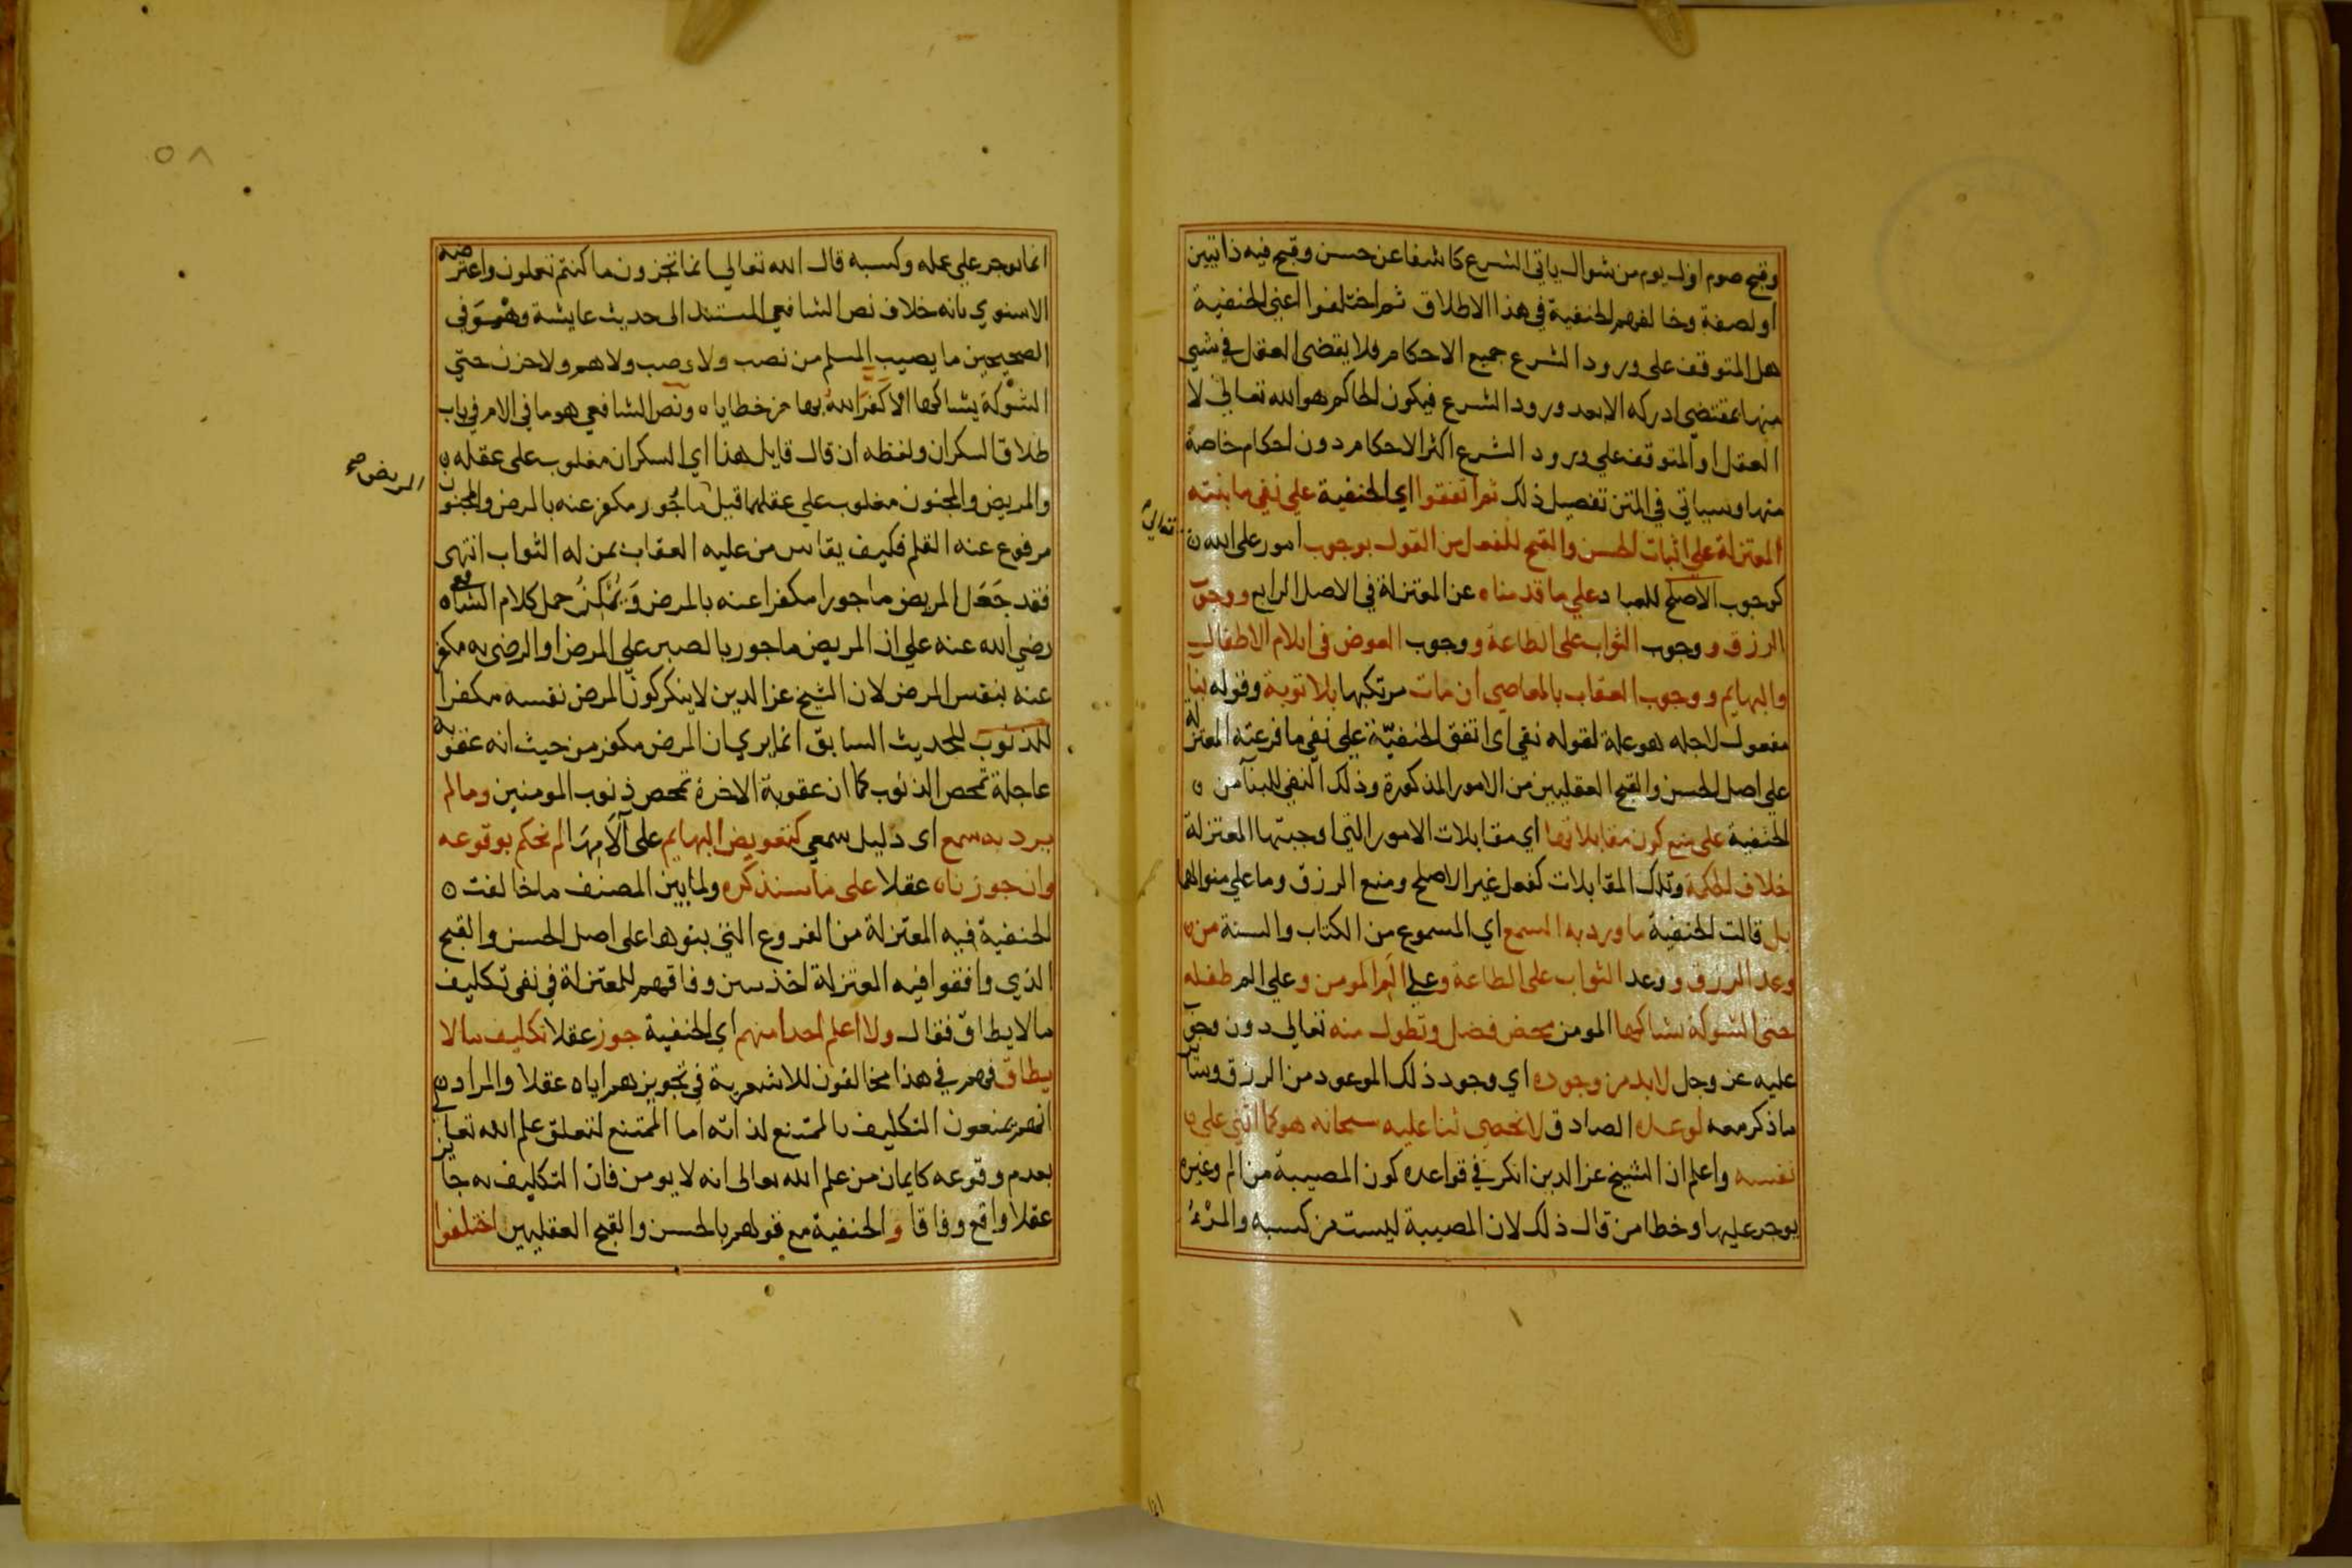 وقبح صوم اول يوم من شوال ياتي الشرع كاشفا عن حسن وقبح فيه ذاتيين
او لصفة وخالفهم الحنفية في هذا الاطلاق ثم اختلفوا اعني الحنفية
هل المتوقف على ورود الشرع جميع الاحكام فلا يقضي العقل في شي
منها بمقتضى ادركه الا بعد ورود الشرع فيكون الحاكم هو الله تعالى لا
العقل او المتوقف علي ورود الشرع اكثر الاحكام دون احكام خاصة
منها وسياتي في المتن تفصيل ذلك ثم اتفقوا اي الحنفية على نفي ما بنته
المعتزلة على اثبات الحسن والقبح للفعل من القول بوجوب امور على الله
تعالى
كوجوب الاصلح للعباد علي ما قدمناه عن المعتزلة في الاصل الرابع ووجوب
الرزق ووجوب الثواب على الطاعة ووجوب العوض في ايلام الاطفال
والبهايم ووجوب العقاب بالمعاصي ان مات مرتكبها بلا توبة وقوله بنا
مفعول لاجله هو علة لقوله نفي اى اتفق الحنفيّة على نفي ما فرعته المعتزلة
علي اصل الحسن والقبح العقليين من الامور المذكورة وذلك النفي للبنا من
الحنفية على منع كون مقابلاتها اي مقابلات الامور التي اوجبتها المعتزلة
خلاف الحكمة وتلك المقابلات كفعل غير الاصلح ومنع الرزق وما علي منوالهما
بل قالت الحنفية ما ورد به السمع اي المسموع من الكتاب والسنة من
وعد الرزق ووعد الثواب على الطاعة وعلى الم المومن وعلى الم طفله
حتى الشوكة يشاكها المومن محض فضل وتطول منه تعالي دون وجوب
عليه عز وجل لا بد من وجوده اي وجود ذلك الموعود من الرزق وساير
ما ذكر معه لوعده الصادق لا نحصي ثنا عليه سبحانه هو كما اثنى على
نفسه واعلم ان الشيخ عز الدين انكر في قواعده كون المصيبة من الم وغيره
يوجر عليها وخطا من قال ذلك لان المصيبة ليست من كسبه والمرْءُ
٥٨
انما يوجر علي عمله وكسبه قال الله تعالي انما تجزون ما كنتم تعملون واعترضه
الاسنوي بانه خلاف نص الشافعي المستند الى حديث عايشة وهو في
الصحيحين ما يصيب المسلم من نصب ولا وصب ولا هم ولا حزن حتي
الشوْكة يشاكها الا كَفّرَ اللهُ بها من خطاياه ونص الشافعي هو ما في الام في باب
طلاق السكران ولفظه ان قال قايل هذا اي السكران مغلوب على عقله
والمريض والمجنون مغلوب علي عقلهما قيل ماجُور مكفر عنه بالمرض والمجنون
المريض صح
مرفوع عنه القلم فكيف يقاس من عليه العقاب بمن له الثواب انتهى
فقد جَعَل المريض ماجورا مكفرا عنه بالمرض وَيُمْكِنُ حمل كلام الشافعي
رضي الله عنه علي ان المريض ماجور بالصبر علي المرض او الرضى به مكفر
عنه بنفس المرض لان الشيخ عز الدين لا ينكر كون المرض نفسه مكفرا
للذنوب للحديث السابق انما يري ان المرض مكفر من حيث انه عقوبة
عاجلة تمحص الذنوب كما ان عقوبة الاخرة تمحص ذنوب المومنين وما لم
يرد به سمع اى دليل سمعي كتعويض البهايم على آلامها لم نحكم بوقوعه
وان جوزناه عقلا على ما سنذكره ولما بين المصنف ما خالفت
الحنفية فيه المعتزلة من الفروع التي بنوها على اصل الحسن والقبح
الذي وافقوا فيه المعتزلة اخذ يبين وفاقهم للمعتزلة في نفي تكليف
ما لا يطاق فقال ولا اعلم احدا منهم اي الحنفية جوز عقلا تكليف ما لا
يطاق فهم في هذا مخالفون للاشعرية في تجويزهم اياه عقلا والمراد
انهم يمنعون التكليف بالممتنع لذاته اما الممتنع لتعلق علم الله تعالى
بعدم وقوعه كايمان من علم الله تعالى انه لا يومن فان التكليف به جايز
عقلا واقع وفاقا والحنفية مع قولهم بالحسن والقبح العقليين اختلفوا